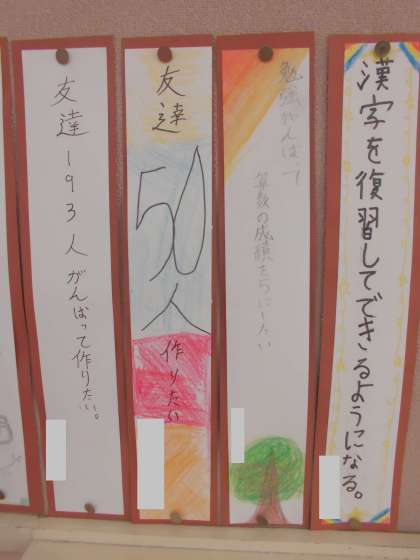 漢字を復習してできるようになる。
勉強がんばって
算数の成績を5にしたい
友達
50人
作りたい
友達193人がんばって作りたい。